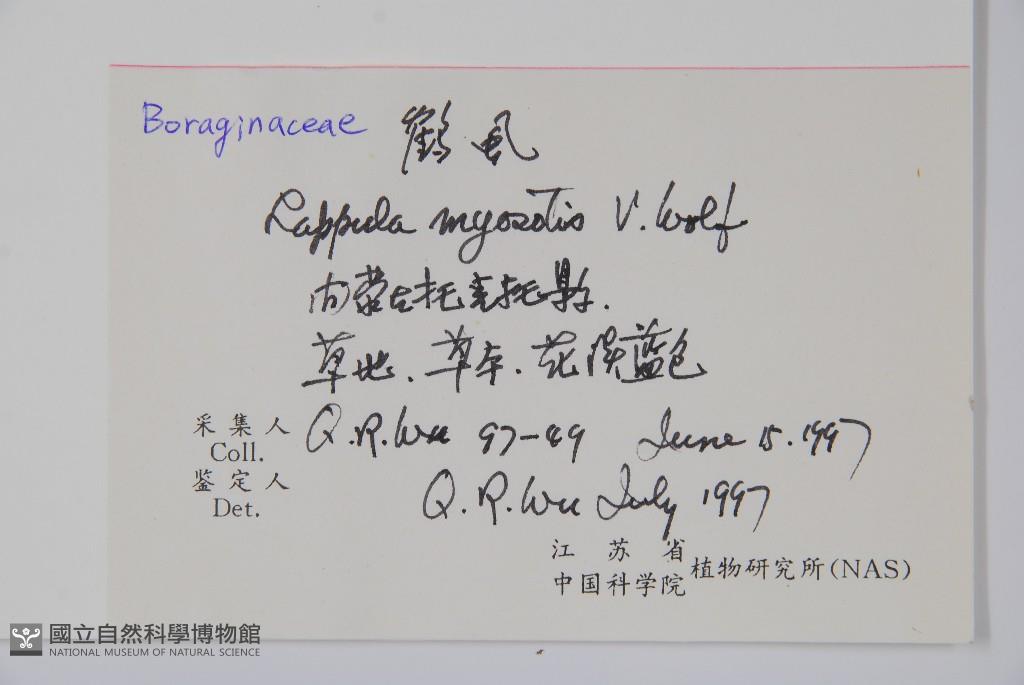 Boraginaceae 鶴虱
Lappula myosotis V. Wolf
内蒙古托克托縣.
草地.草本.花淡蓝色
采集人 Coll. Q.R.Wu 97-49 June 15.1997
鉴定人 Det. Q.R.Wu July 1997
江苏省
中国科学院 植物研究所(NAS)
國立自然科學博物館
NATIONAL MUSEUM OF NATURAL SCIENCE